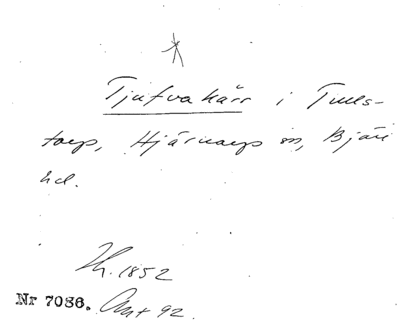 Tjufvakärr i Tuls-
torp, Hjärnarps sn, Bjäre
hd.
Th. 1852
Nr 7086. Ant 92.